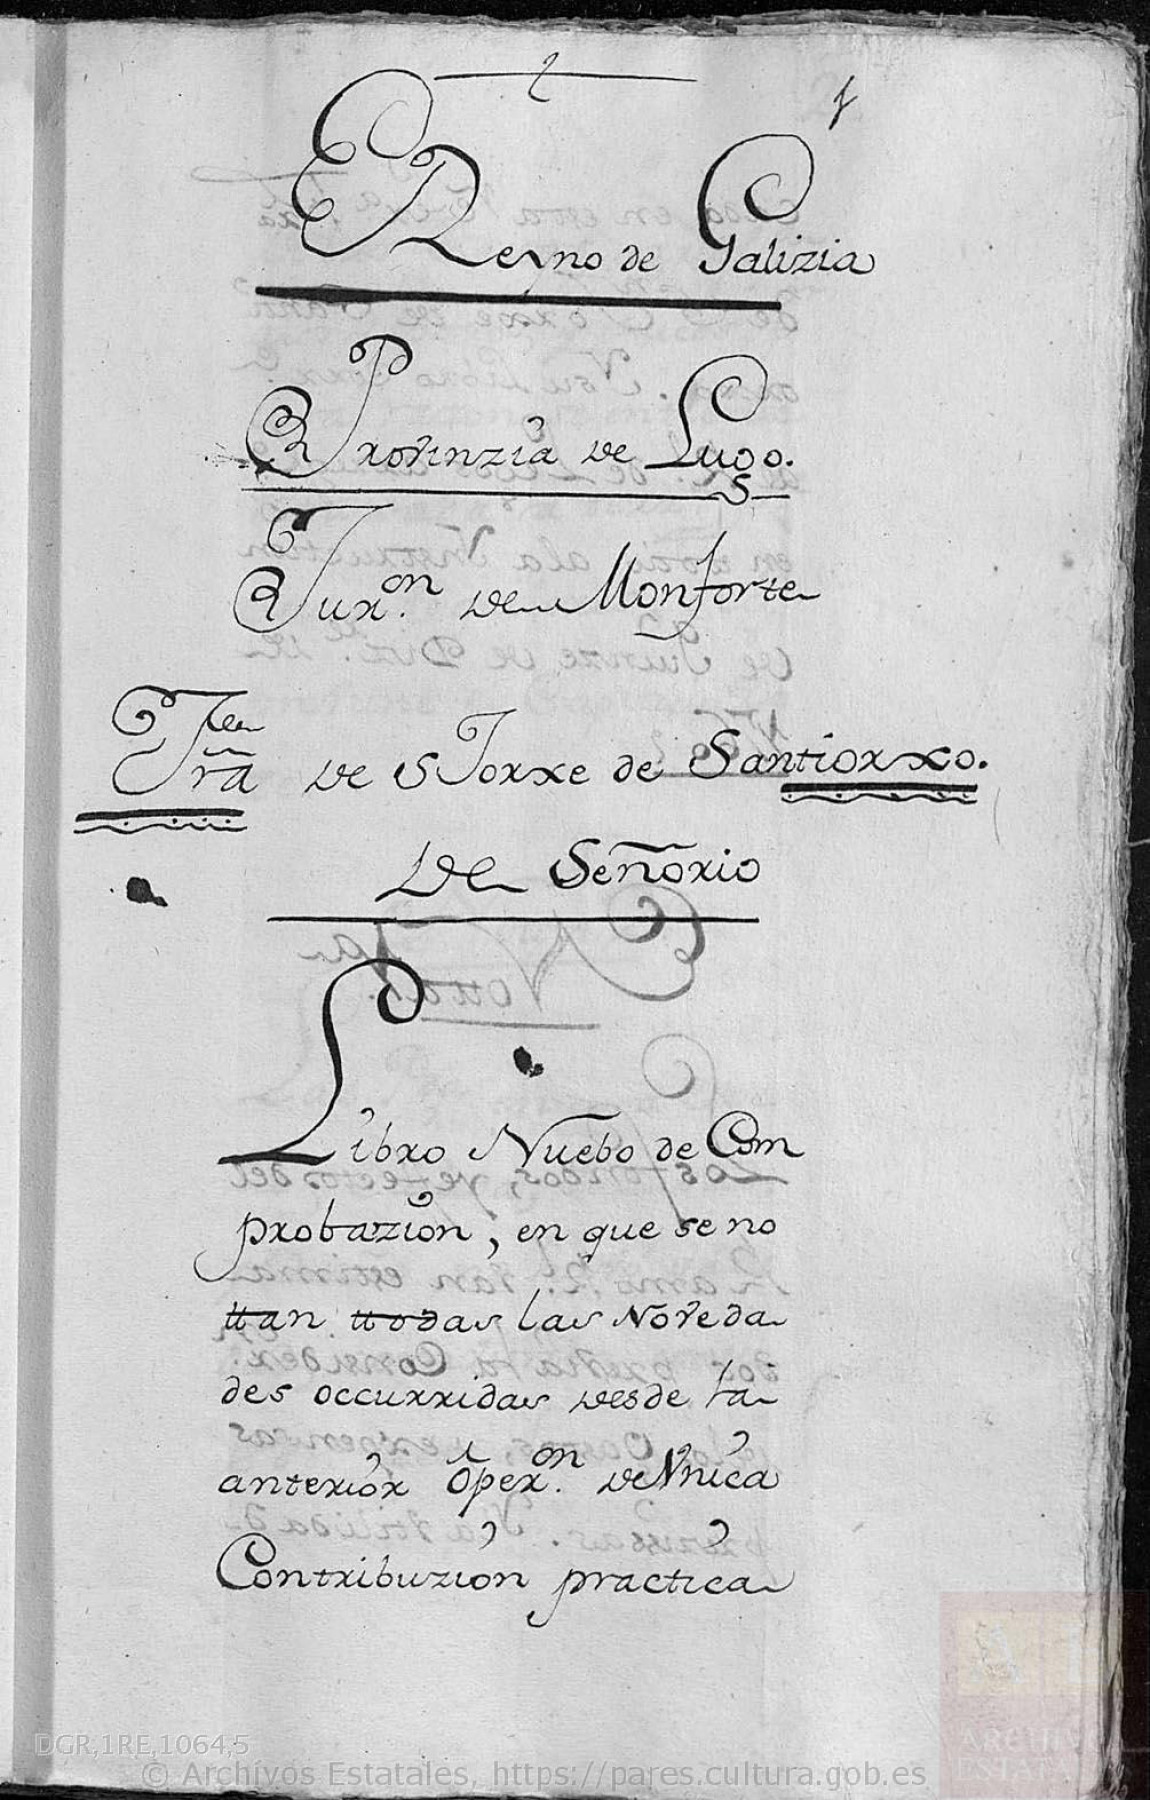 1
Reyno de Galizia
Provinzia de Lugo.
Juron. de Monforte
Fra de S Jorxe de Santiorxo.
De Señorio
Libro Nuebo de Com
probazion, en que se no
ttan ttodas las Noveda
des occurridas desde la
anterior Oper.on de Vnica
Contribuzion practica
DGR,1RE,1064,5
© Archivos Estatales, https://pares.cultura.gob.es